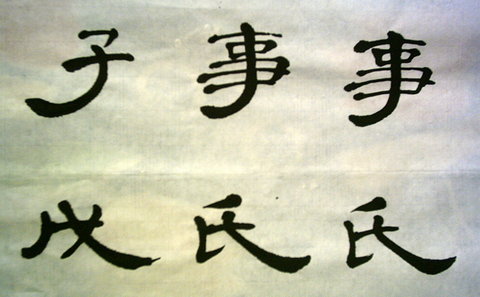 子事事
戊氏氏